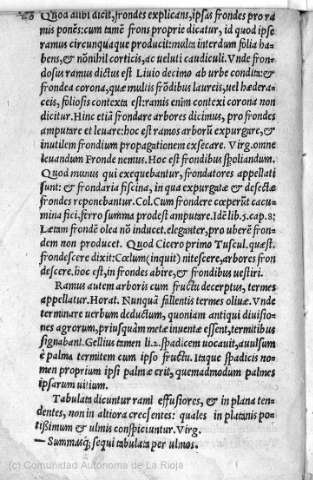 Quod alibi dicit, frondes explicans, ipsas frondes pro ra
mis ponēs: cum tamē frons proprie dicatur, id quod ipse
ramus circunquaque producit: multa interdum folia ha
bens, & nōnihil corticis, ac ueluti caudiculi. Vnde fron-
dosus ramus dictus est Liuio decimo ab urbe condita: &
frondea corona, quæ multis frōdibus laureis, uel hedera-
ceis, foliosis contexta est: ramis enim contexi corona non
dicitur. Hinc etiā frondare arbores dicimus, pro frondes
amputare et leuare: hoc est ramos arborū expurgare, &
inutilem frondium propagationem exsecare. Virg. omne
leuandum Fronde nemus. Hoc est frondibus spoliandum.
Quod munus qui exequebantur, frondatores appellati
sunt: & frondaria fiscina, in qua expurgatæ & desectæ
frondes reponebantur. Col. Cum frondere cœperūt cacu
mina fici, ferro summa prodest amputare. Idē lib. 5. cap. 8:
Lætam frondē olea nō inducet. eleganter, pro uberē fron-
dem non producet. Quod Cicero primo Tuscul. quæst.
frondescere dixit: Cœlum (inquit) nitescere, arbores fron
descere, hoc est, in frondes abire, & frondibus uestiri.
Ramus autem arboris cum fructu deceptus, termes
appellatur. Horat. Nunquā fallentis termes oliuæ. Vnde
terminare uerbum deductum, quoniam antiqui diuisio-
nes agrorum, priusquàm metæ inuentæ essent, termitibus
signabant. Gellius tamen li. 2. spadicem uocauit, auulsum
è palma termitem cum ipso fructu. Itaque spadicis no-
men proprium ipsi palmæ erit, quemadmodum palmes
ipsarum uitium.
Tabulata dicuntur rami effusiores, & in plana ten-
dentes, non in altiora crescentes: quales in platanis po-
tißimum & ulmis conspiciuntur. Virg.
—Summasq́; sequi tabulata per ulmos.
(c) Comunidad Autónoma de La Rioja